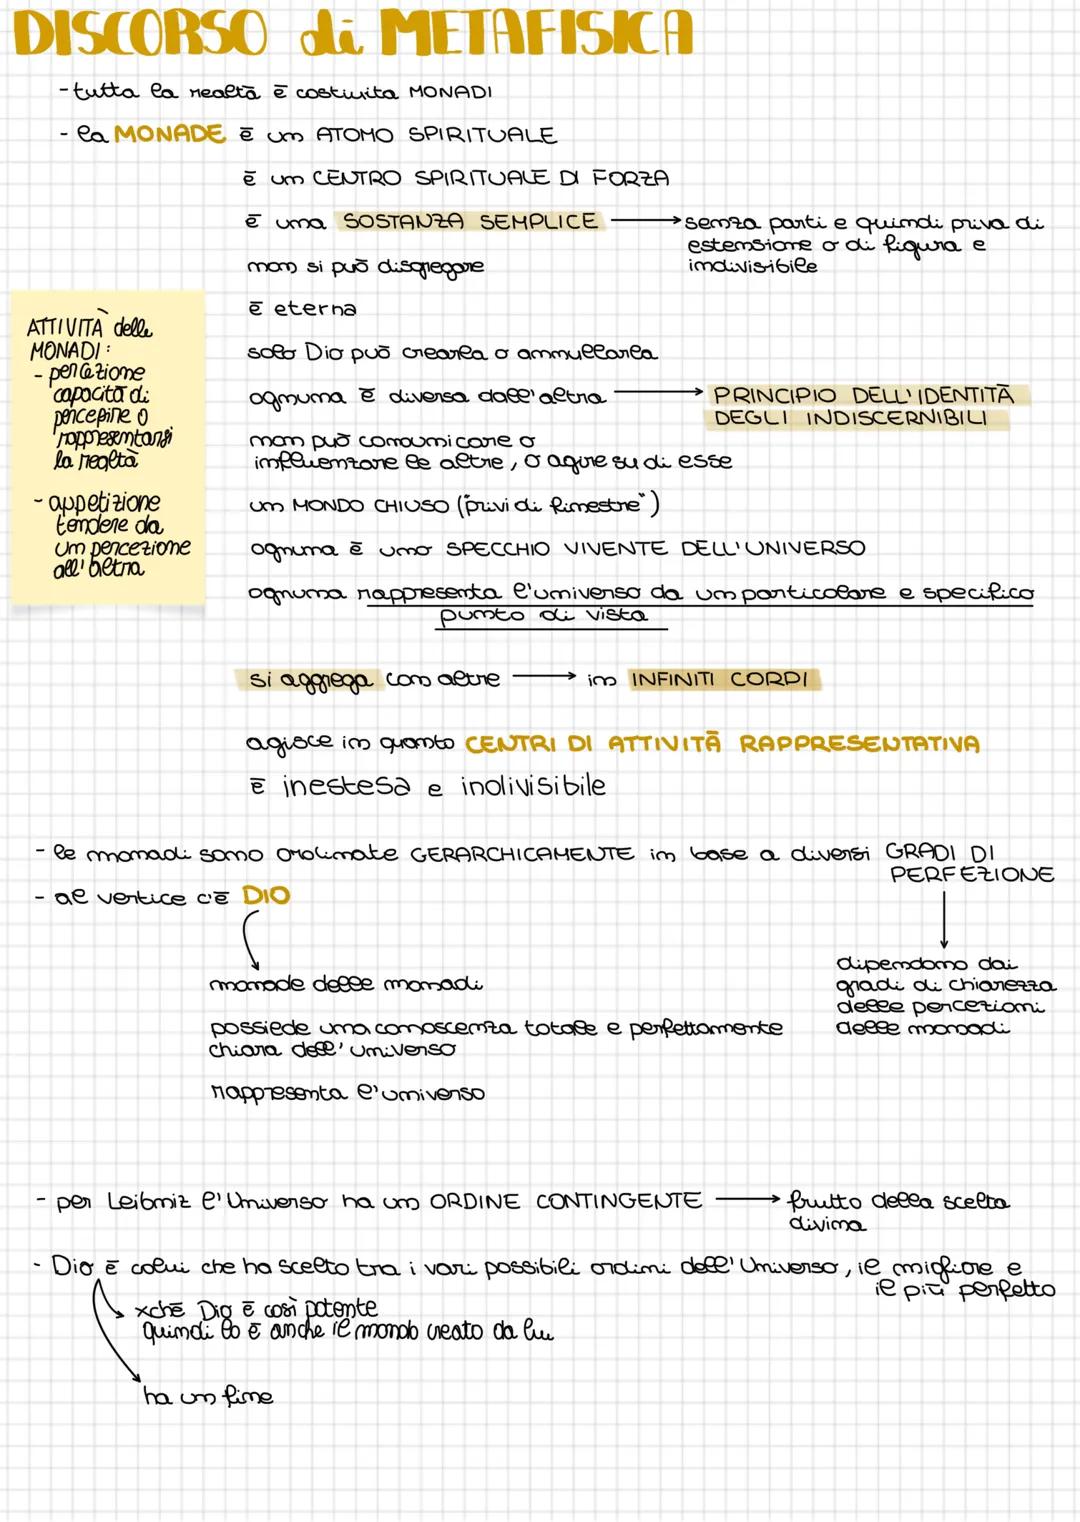 DISCORSO di METAFISICA
- tutta la realtà è costiuita MONADI
- la MONADE è un ATOMO SPIRITUALE
è un CENTRO SPIRITUALE DI FORZA
è una SOSTANZA SEMPLICE → senza parti e quindi priva di
estensione o di figura e
indivisibile
non si può disgregare
è eterna
solo Dio può crearla o annullarla
ognuna è diversa dall'altra → PRINCIPIO DELL'IDENTITÀ
DEGLI INDISCERNIBILI
non può comoumicare o
influenzare le altre, o agire su di esse
un MONDO CHIUSO ("privi di finestre")
ognuna è uno SPECCHIO VIVENTE DELL'UNIVERSO
ognuna rappresenta l'universo da un particolare e specifico
punto di vista
ATTIVITÀ delle
MONADI:
- percezione
capacità di
percepire o
rappresentarsi
la realtà
- appetizione
tendere da
un percezione
all'altra
si aggrega con altre → in INFINITI CORPI
agisce in quanto CENTRI DI ATTIVITÀ RAPPRESENTATIVA
è inestesa e indivisibile
- le monadi sono ordinate GERARCHICAMENTE in base a diversi GRADI DI
PERFEZIONE
- al vertice c'è DIO
monade delle monadi
possiede una conoscenza totale e perfettamente
chiara dell'universo
rappresenta l'universo
dipendono dai
gradi di chiarezza
delle percezioni
delle monadi
- per Leibniz l'Universo ha un ORDINE CONTINGENTE → frutto della scelta
divina
- Dio è colui che ha scelto tra i vari possibili ordini dell'Universo, il migliore e
il più perfetto
xchè Dio è così potente
quindi lo è anche il mondo creato da lui
ha un fine